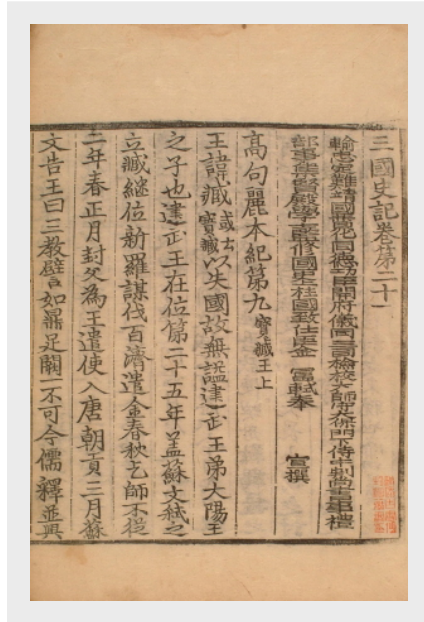 三國史記卷第二十一
輸忠定難靖國贊化同德功臣開府儀同三司檢校太師守太保門下侍中判尚書吏禮
部事集賢殿大學士監修國史上柱國致仕臣金 富軾奉 宣撰
高句麗本紀第九 寶臧王上
王諱臧或云寶臧以失國故無諡建武王弟大陽王
之子也建武王在位第二十五年盖蘇文弑之
立臧継位新羅謀伐百濟遣金春秋乞師不從
二年春正月封父為王遣使入唐朝貢三月蘇
文告王曰三教譬如鼎足闕一不可今儒釋並興